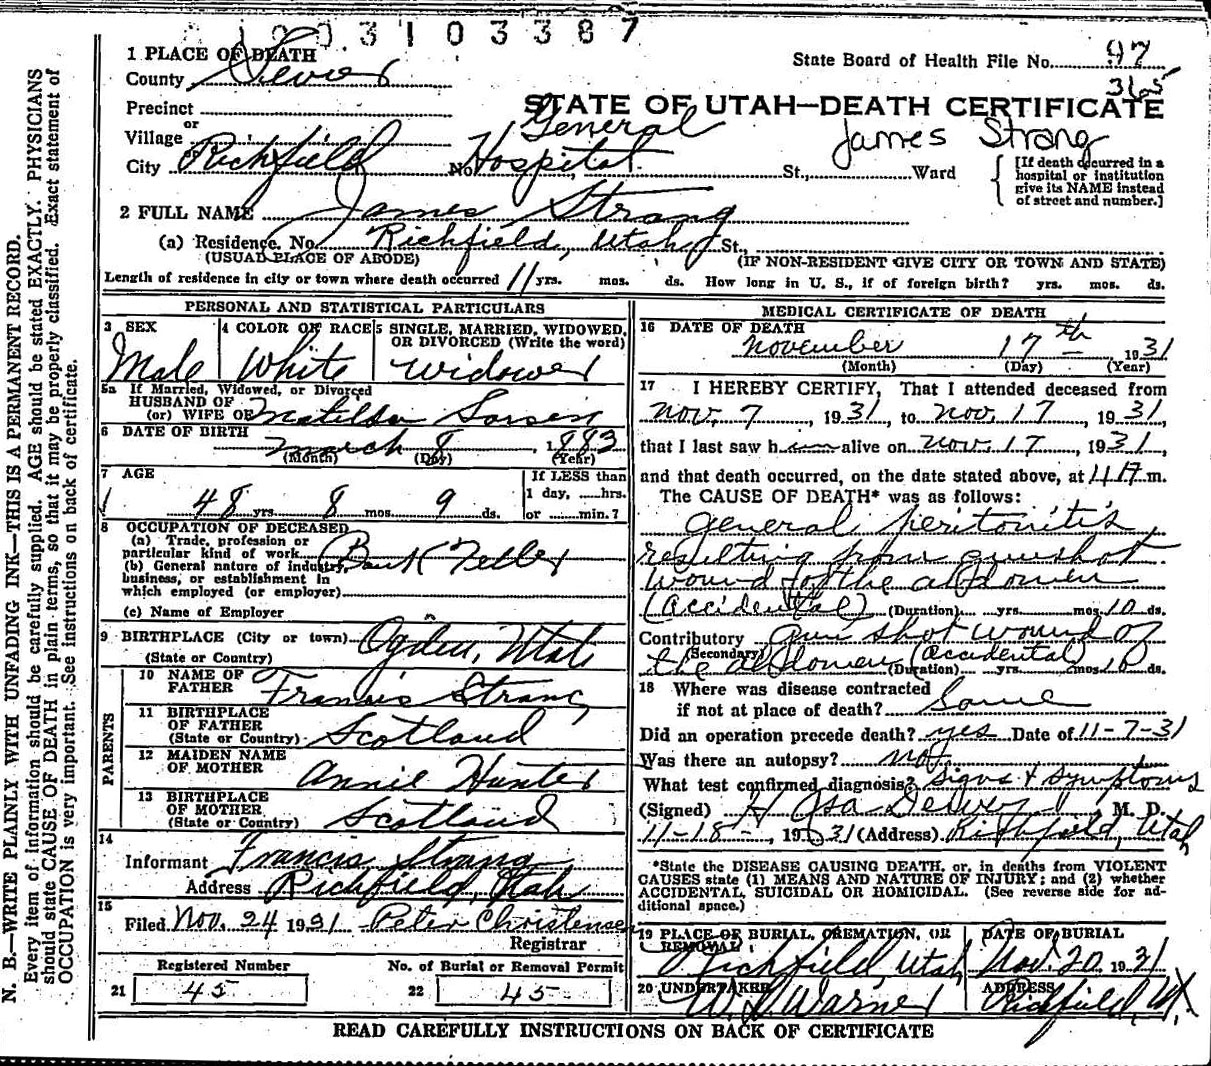 003103387
1 PLACE OF DEATH
County Sevier
State Board of Health File No. 97
365
Precinct
STATE OF UTAH—DEATH CERTIFICATE
or
Village
General
James Strang
or
City Richfield No. Hospital St., Ward
[If death occurred in a
hospital or institution
give its NAME instead
of street and number.]
2 FULL NAME James Strang
(a) Residence. No. Richfield, Utah St.,
(USUAL PLACE OF ABODE) (IF NON-RESIDENT GIVE CITY OR TOWN AND STATE)
Length of residence in city or town where death occurred 11 yrs. mos. ds. How long in U. S., if of foreign birth? yrs. mos. ds.
PERSONAL AND STATISTICAL PARTICULARS
3 SEX 4 COLOR OR RACE 5 SINGLE, MARRIED, WIDOWED,
OR DIVORCED (Write the word)
Male White Widower
5a If Married, Widowed, or Divorced
HUSBAND OF
(or) WIFE OF Matilda
6 DATE OF BIRTH March 8 1883
(Month) (Day) (Year)
7 AGE If LESS than
1 day, ......hrs.
48 yrs. 8 mos. 9 ds. or ......min.?
8 OCCUPATION OF DECEASED
(a) Trade, profession or
particular kind of work Bank Teller
(b) General nature of industry,
business, or establishment in
which employed (or employer)
(c) Name of Employer
9 BIRTHPLACE (City or town) Ogden, Utah
(State or Country)
PARENTS
10 NAME OF
FATHER Francis Strang
11 BIRTHPLACE
OF FATHER
(State or Country) Scotland
12 MAIDEN NAME
OF MOTHER Annie Hunter
13 BIRTHPLACE
OF MOTHER
(State or Country) Scotland
14
Informant Francis Strang
Address Richfield, Utah
15
Filed Nov. 24 1931 Peter Christensen
Registrar
Registered Number No. of Burial or Removal Permit
21 45 22 45
MEDICAL CERTIFICATE OF DEATH
16 DATE OF DEATH
November 17th 1931
(Month) (Day) (Year)
17 I HEREBY CERTIFY, That I attended deceased from
Nov. 7, 1931, to Nov. 17, 1931,
that I last saw him alive on Nov. 17, 1931,
and that death occurred, on the date stated above, at m.
The CAUSE OF DEATH* was as follows:
General peritonitis
resulting from gunshot
wound to the abdomen
(Accidental) (Duration) yrs. mos. 10 ds.
Contributory Gun shot wound of
(Secondary)
the abdomen (Accidental)
(Duration) yrs. mos. 10 ds.
18 Where was disease contracted
if not at place of death? Same
Did an operation precede death? yes Date of 11-7-31
Was there an autopsy? no
What test confirmed diagnosis? Signs & Symptoms
(Signed) H Asa Dewey M. D.
11-18-, 1931 (Address) Richfield, Utah
*State the DISEASE CAUSING DEATH, or, in deaths from VIOLENT
CAUSES state (1) MEANS AND NATURE OF INJURY; and (2) whether
ACCIDENTAL, SUICIDAL OR HOMICIDAL. (See reverse side for ad-
ditional space.)
19 PLACE OF BURIAL, CREMATION, OR
REMOVAL
DATE OF BURIAL
Richfield Utah Nov. 20 1931
20 UNDERTAKER ADDRESS
W. D. Warner Richfield, Ut.
READ CAREFULLY INSTRUCTIONS ON BACK OF CERTIFICATE
N. B.—WRITE PLAINLY WITH UNFADING INK—THIS IS A PERMANENT RECORD.
Every item of information should be carefully supplied. AGE should be stated EXACTLY. PHYSICIANS
should state CAUSE OF DEATH in plain terms, so that it may be properly classified. Exact statement of
OCCUPATION is very important. See instructions on back of certificate.